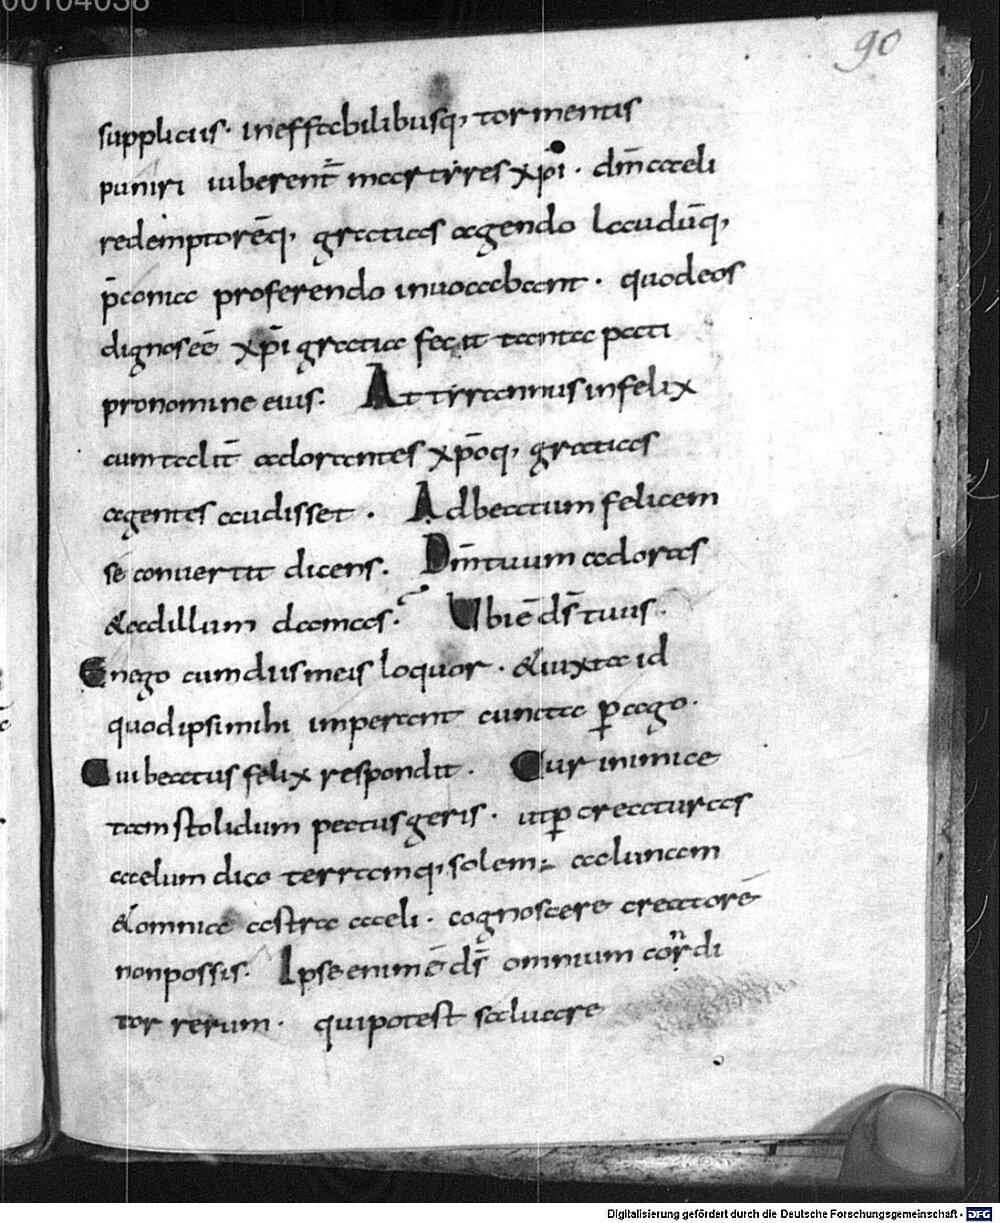 00104038
90
suppliciis · ineffabilibusq, tormentis
puniri iuberent̄ martyres xp̄i · dn̄m caeli
redemptorēq, gratias agendo laudūq,
p̄conia proferendo inuocabant · quodeos
dignosēē xp̄i gratia fecit tanta pati
pronomine eius. At tyrannus infelix
cum talit̄ adorantes xp̄oq, gratias
agentes audisset · Adbeatum felicem
sé conuertit dicens. Dn̄m tuum adoras
&adillum clamas. Ubi ē ds̄ tuus.
En ego cum diis meis loquor · &iuxta id
quod ipsi mihi imperant cuncta ꝑago.
Cui beatus felix respondit. Cur inimice
tam stolidum pectus geris. ut ꝑ creaturas
caelum dico terramq, solem ac lunam
&omnia astra caeli · cognoscere creatorē
non possis. Ipse enim ē ds̄ omnium condi
tor rerum · qui potest saluare
Digitalisierung gefördert durch die Deutsche Forschungsgemeinschaft - DFG